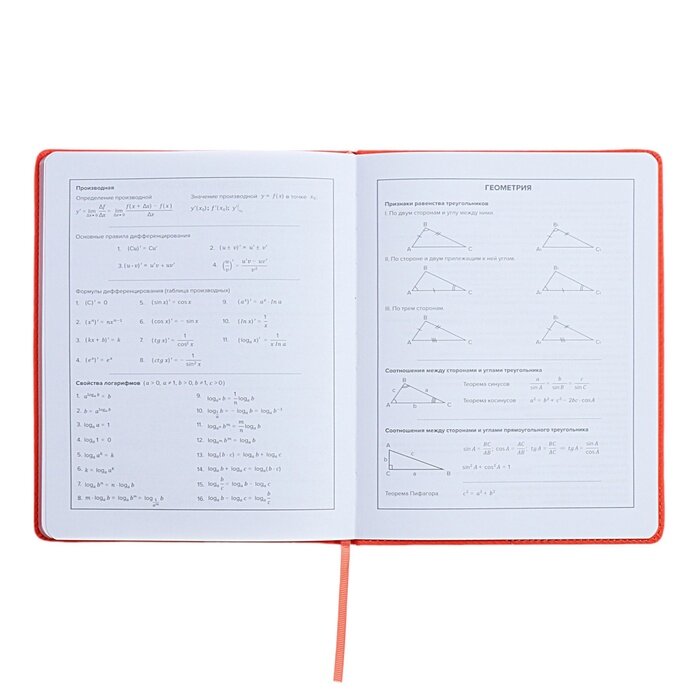 Производная
Определение производной
y' = lim Δx→0 Δf/Δx = lim Δx→0 f(x + Δx) − f(x)/Δx
Значение производной y = f(x) в точке x₀:
y'(x₀); f'(x₀); y'|
Основные правила дифференцирования
1. (Cu)' = Cu'
2. (u ± v)' = u' ± v'
3. (u · v)' = u'v + uv'
4. (u/v)' = u'v − uv'/v²
Формулы дифференцирования (таблица производных)
1. (C)' = 0
5. (sin x)' = cos x
9. (aˣ)' = aˣ · ln a
2. (xⁿ)' = nxⁿ⁻¹
6. (cos x)' = − sin x
10. (ln x)' = 1/x
3. (kx + b)' = k
7. (tg x)' = 1/cos² x
11. (logₐ x)' = 1/x ln a
4. (eˣ)' = eˣ
8. (ctg x)' = − 1/sin² x
Свойства логарифмов (a > 0, a ≠ 1, b > 0, b ≠ 1, c > 0)
1. a^logₐ b = b
9. logₐⁿ b = 1/n logₐ b
2. b = a^logₐ b
10. log 1/a b = − logₐ b = logₐ b⁻¹
3. logₐ a = 1
11. logₐⁿ bᵐ = m/n logₐ b
4. logₐ 1 = 0
12. logₐⁿ bⁿ = logₐ b
5. logₐ aᵏ = k
13. logₐ(b · c) = logₐ b + logₐ c
6. k = logₐ aᵏ
14. logₐ b + logₐ c = logₐ(b · c)
7. logₐ bᵐ = m · logₐ b
15. logₐ b/c = logₐ b − logₐ c
8. m · logₐ b = logₐ bᵐ = log 1/aᵐ b
16. logₐ b − logₐ c = logₐ b/c
ГЕОМЕТРИЯ
Признаки равенства треугольников
I. По двум сторонам и углу между ними.
B
A C
B₁
A₁ C₁
II. По стороне и двум прилежащим к ней углам.
B
A C
B₁
A₁ C₁
III. По трем сторонам.
B
A C
B₁
A₁ C₁
Соотношения между сторонами и углами треугольника
B
c a
A b C
Теорема синусов a/sin A = b/sin B = c/sin C
Теорема косинусов a² = b² + c² − 2bc · cosA
Соотношения между сторонами и углами прямоугольного треугольника
A
b c
C a B
sin A = BC/AB; cos A = AC/AB; tg A = BC/AC ⟹ tg A = sin A/cos A
sin² A + cos² A = 1
Теорема Пифагора c² = a² + b²